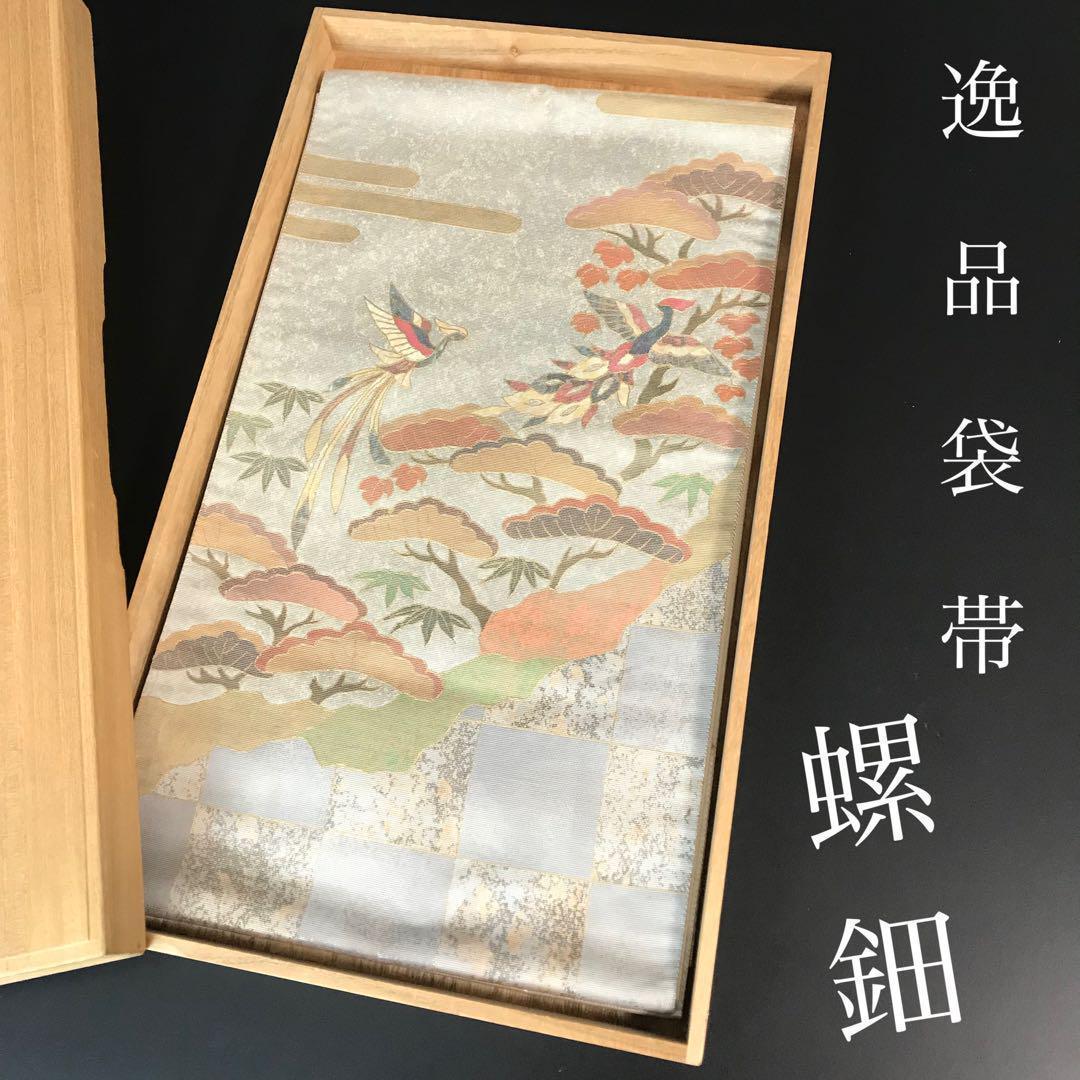 逸品袋帯
螺鈿